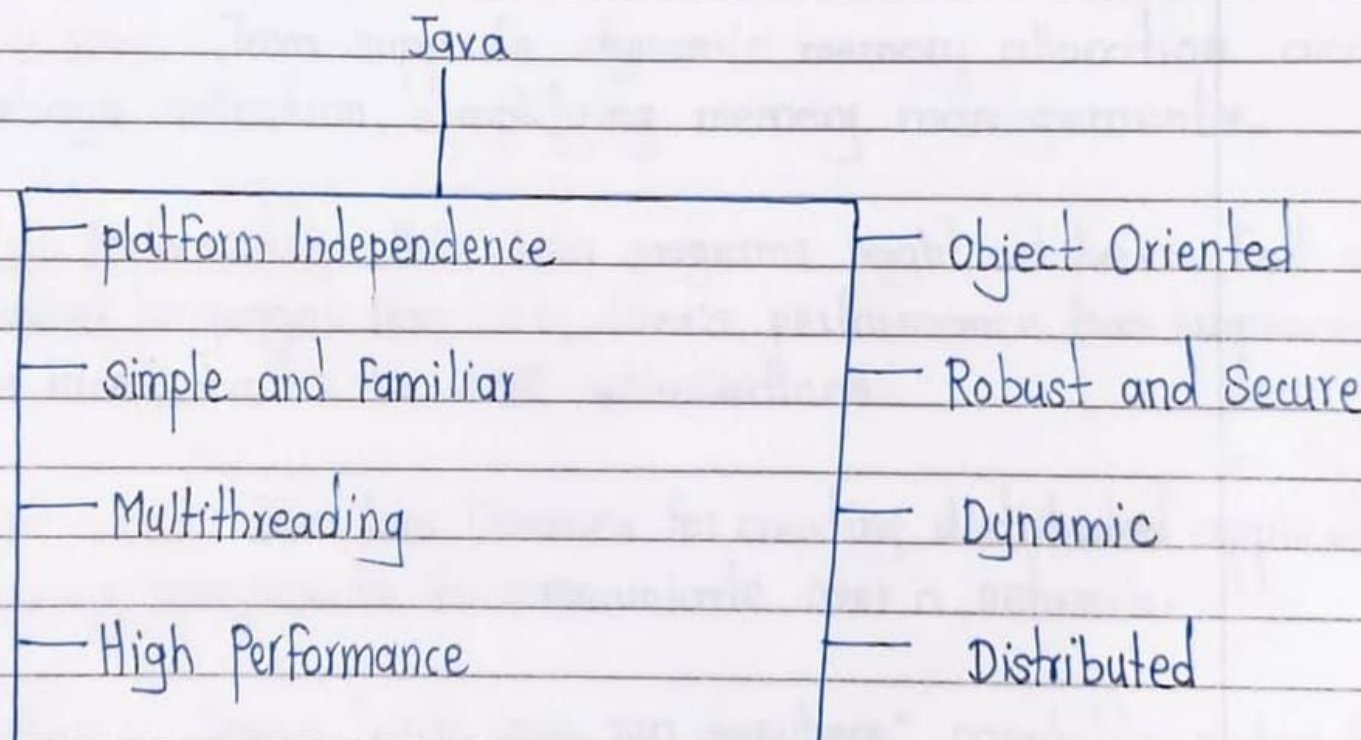 Java
platform Independence
Simple and Familiar
Multithreading
High Performance
Object Oriented
Robust and Secure
Dynamic
Distributed